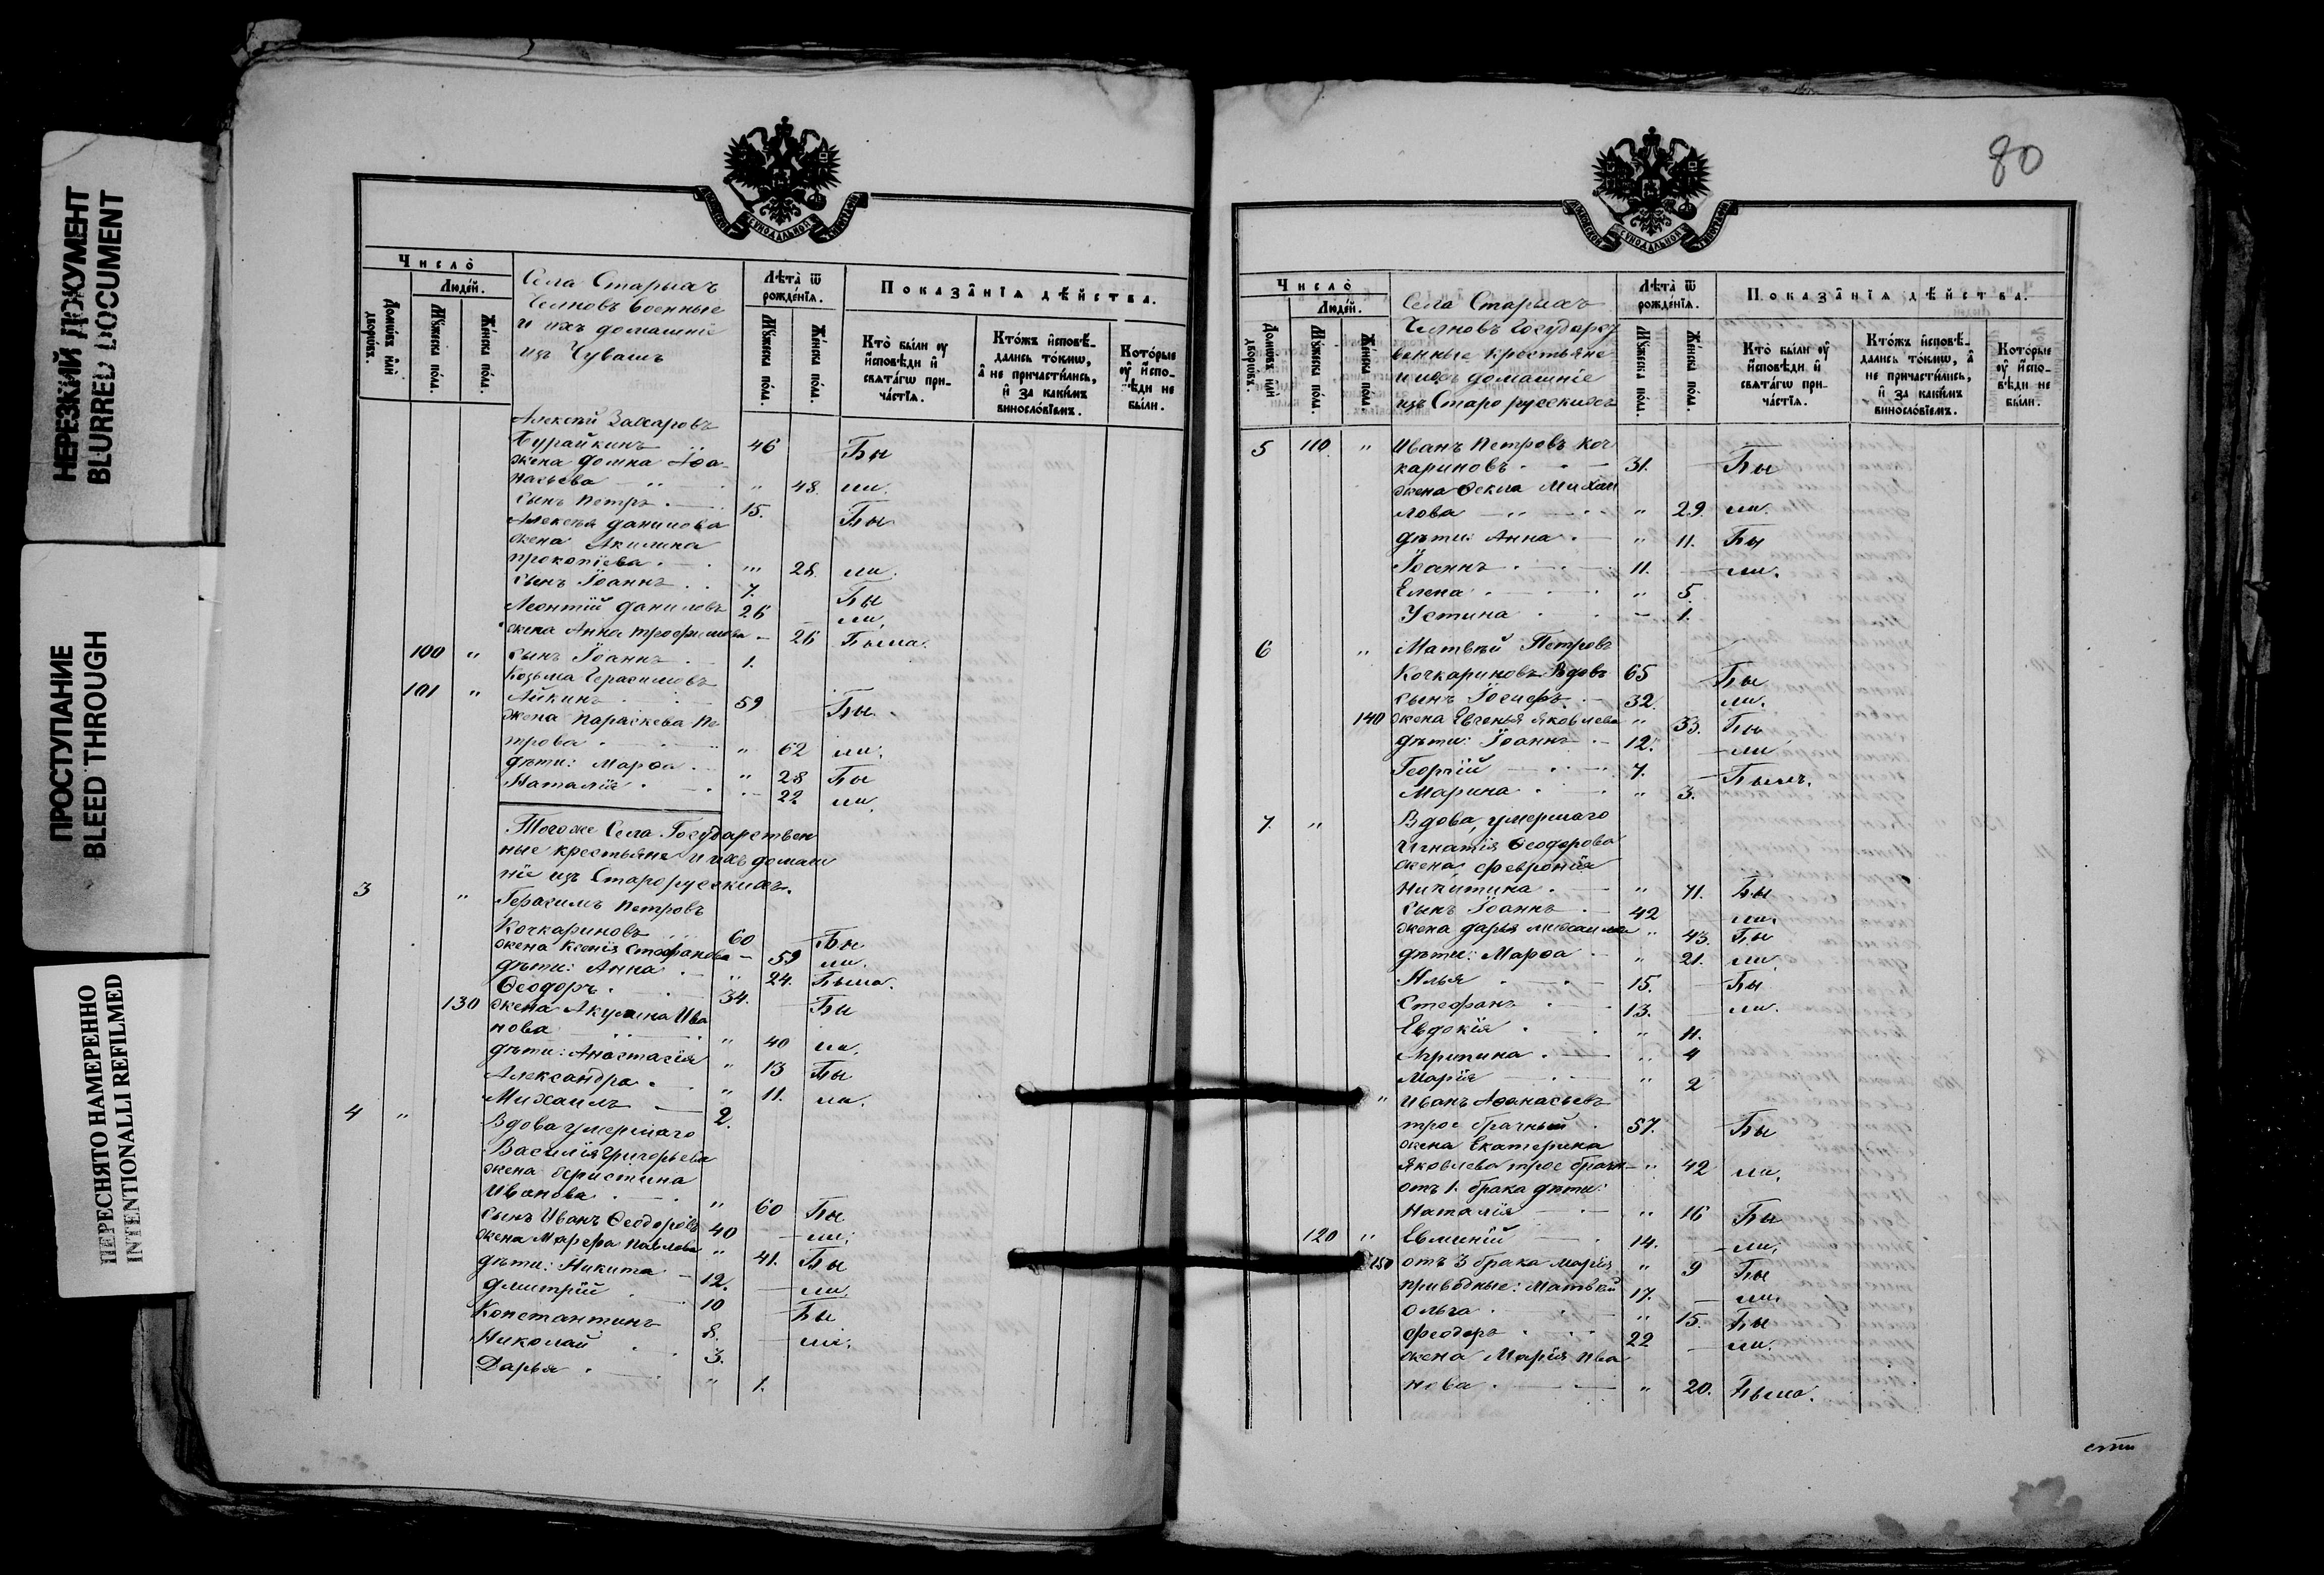 НЕРЕЗКИЙ ДОКУМЕНТ
BLURRED DOCUMENT
ПРОСТУПАНИЕ
BLEED THROUGH
ПЕРЕСНЯТО НАМЕРЕННО
INTENTIONALLI REFILMED
МОСКОВСКОЙ СѴНОДАЛЬНОЙ ТѴПОГРАФІИ
Число̀
Людей.
Домѡвъ илѝ дворѡвъ.
Мꙋжеска полꙋ.
Женска полꙋ.
Села Старыхъ
Челновъ военные
и ихъ домашніе
изъ Чувашъ
Лѣта̀ ѿ рожденїѧ.
Мꙋжеска полꙋ.
Женска полꙋ.
Показанїѧ дѣйства.
Кто̀ были оу҆ и҆сповѣди и҆ свѧтагѡ причастїѧ.
Кто́жъ и҆сповѣдались то́кмѡ, а҆ не причастились, и҆ за какимъ винословїемъ.
Кото́рые оу҆ и҆сповѣди не были.
Алексѣй Захаровъ
Бурайкинъ 46 Бы
жена Домна Аѳа-
насьева " 48. ли.
сынъ Петръ 15. Бы
Алексѣя Данилова
жена Акилина
Прокопіева " 28. ли.
сынъ Іоаннъ 7. Бы
Леонтій Даниловъ 26 ли.
жена Анна Трофимова — 26 Была.
100 " сынъ Іоаннъ 1.
Козьма Герасимовъ
101 " Айкинъ 59 Бы
жена Параскева Пе
трова " 62 ли.
дѣти: Марѳа " 28 Бы
Наталія " 22 ли.
Тогоже Села Государствен
ные крестьяне и ихъ домаш
ніе изъ Старорусскихъ.
3 " Герасимъ Петровъ
Кочкариновъ 60 Бы
жена Ксенія Стефанова — 59 ли.
дѣти: Анна " 24. Была.
Ѳеодоръ 34. Бы
130 жена Акулина Ива
нова " 40 ли.
дѣти: Анастасія " 13 Бы
Александра " 11. ли.
Михаилъ 2.
4 " Вдова умершаго
Василія Григорьева
жена Христина
Иванова " 60 Бы
сынъ Иванъ Ѳеодоровъ 40 ли.
жена Марѳа Павлова " 41. Бы
дѣти: Никита 12. ли.
Дмитрій 10 Бы
Константинъ 8. ли.
Николай 3.
Дарья " 1.
80
МОСКОВСКОЙ СѴНОДАЛЬНОЙ ТѴПОГРАФІИ
Число̀
Людей.
Домѡвъ илѝ дворѡвъ.
Мꙋжеска полꙋ.
Женска полꙋ.
Села Старыхъ
Челновъ Государст
венные крестьяне
и ихъ домашніе
изъ Старорусскихъ
Лѣта̀ ѿ рожденїѧ.
Мꙋжеска полꙋ.
Женска полꙋ.
Показанїѧ дѣйства.
Кто̀ были оу҆ и҆сповѣди и҆ свѧтагѡ причастїѧ.
Кто́жъ и҆сповѣдались то́кмѡ, а҆ не причастились, и҆ за какимъ винословїемъ.
Кото́рые оу҆ и҆сповѣди не были.
5 110 " Иванъ Петровъ Коч
кариновъ 31. Бы
жена Ѳекла Михаи
лова " 29. ли.
дѣти: Анна " 11. Бы
Іоаннъ 11. ли.
Елена " 5.
Устина — 1.
6 " Матвѣй Петровъ
Кочкариновъ Вдовъ 65 Бы
сынъ Іосифъ 32. ли.
140 жена Евгенья Яковлева " 33. Бы
дѣти: Іоаннъ 12. ли
Георгій 7. Былъ.
Марина " 3.
7. " Вдова, умершаго
Игнатія Ѳеодорова
жена, Февронія
Никитина " 71. Бы
сынъ Іоаннъ 42 ли.
жена Дарья Михаилова " 43. Бы
дѣти: Марѳа " 21. ли
Илья 15. Бы
Стефанъ 13. ли.
Евдокія " 11.
Агрипина " 4
Марія " 2
" Иванъ Аѳанасьевъ
троебрачный 57. Бы
жена Екатерина
Яковлева троебрачн " 42 ли.
отъ 1. брака дѣти:
Наталія " 16 Бы
120 " Евминій 14. ли.
150 отъ 3 брака Марія " 9 Бы
приводные: Матвѣй 17. ли.
Ольга " 15. Бы
Феодоръ 22 ли.
жена Марія Ива
нова " 20. Была.